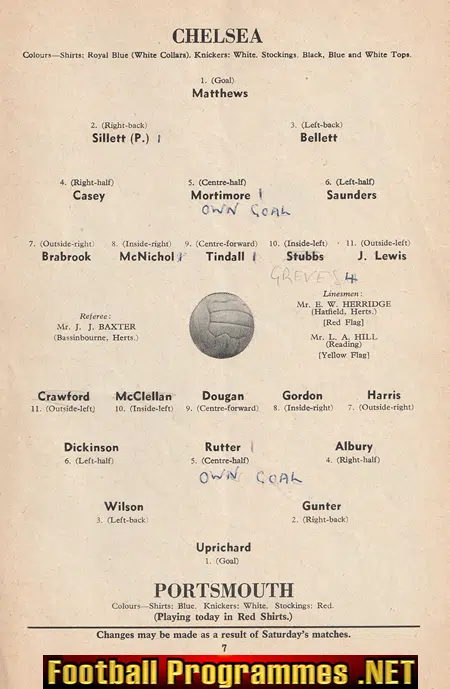 CHELSEA
Colours—Shirts: Royal Blue (White Collars). Knickers: White. Stockings. Black, Blue and White Tops.
1. (Goal)
Matthews
2. (Right-back) 3. (Left-back)
Sillett (P.) 1 Bellett
4. (Right-half) 5. (Centre-half) 6. (Left-half)
Casey Mortimore 1 Saunders
OWN GOAL
7. (Outside-right) 8. (Inside-right) 9. (Centre-forward) 10. (Inside-left) 11. (Outside-left)
Brabrook McNichol 1 Tindall 1 Stubbs J. Lewis
GREVES 4
Referee:
Mr. J. J. BAXTER
(Bassinbourne, Herts.)
Linesmen:
Mr. E. W. HERRIDGE
(Hatfield, Herts.)
[Red Flag]
Mr. L. A. HILL
(Reading)
[Yellow Flag]
Crawford McClellan Dougan Gordon Harris
11. (Outside-left) 10. (Inside-left) 9. (Centre-forward) 8. (Inside-right) 7. (Outside-right)
Dickinson Rutter 1 Albury
6. (Left-half) 5. (Centre-half) 4. (Right-half)
OWN GOAL
Wilson Gunter
3. (Left-back) 2. (Right-back)
Uprichard
1. (Goal)
PORTSMOUTH
Colours—Shirts: Blue. Knickers: White. Stockings: Red.
(Playing today in Red Shirts.)
Changes may be made as a result of Saturday's matches.
7
Football Programmes .NET